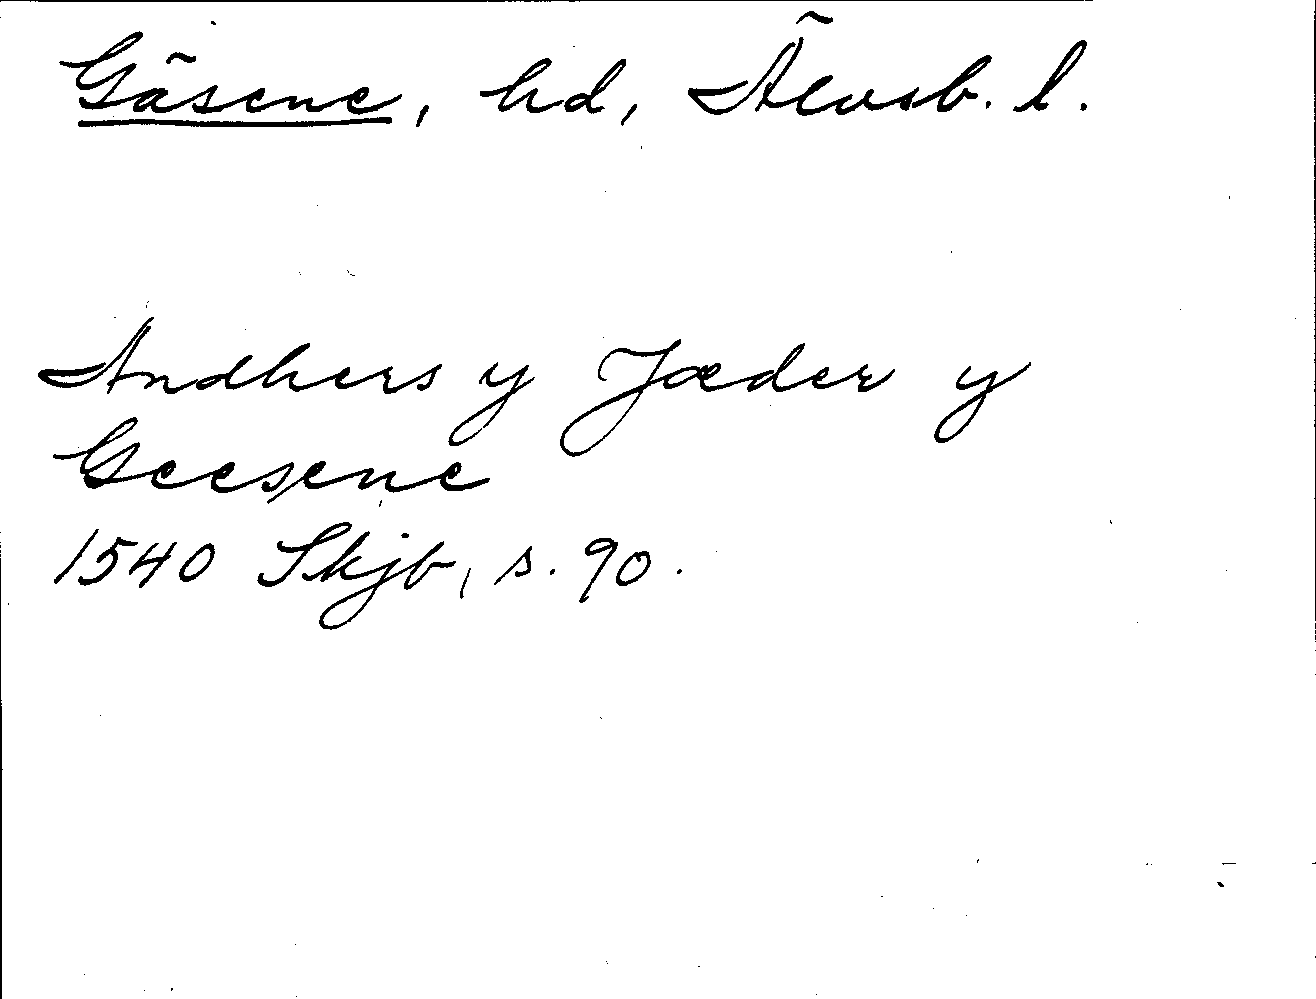 Gäsene, hd, Älvsb. l.
Andhers y Jæder y
Geesene
1540 Skjb, s. 90.